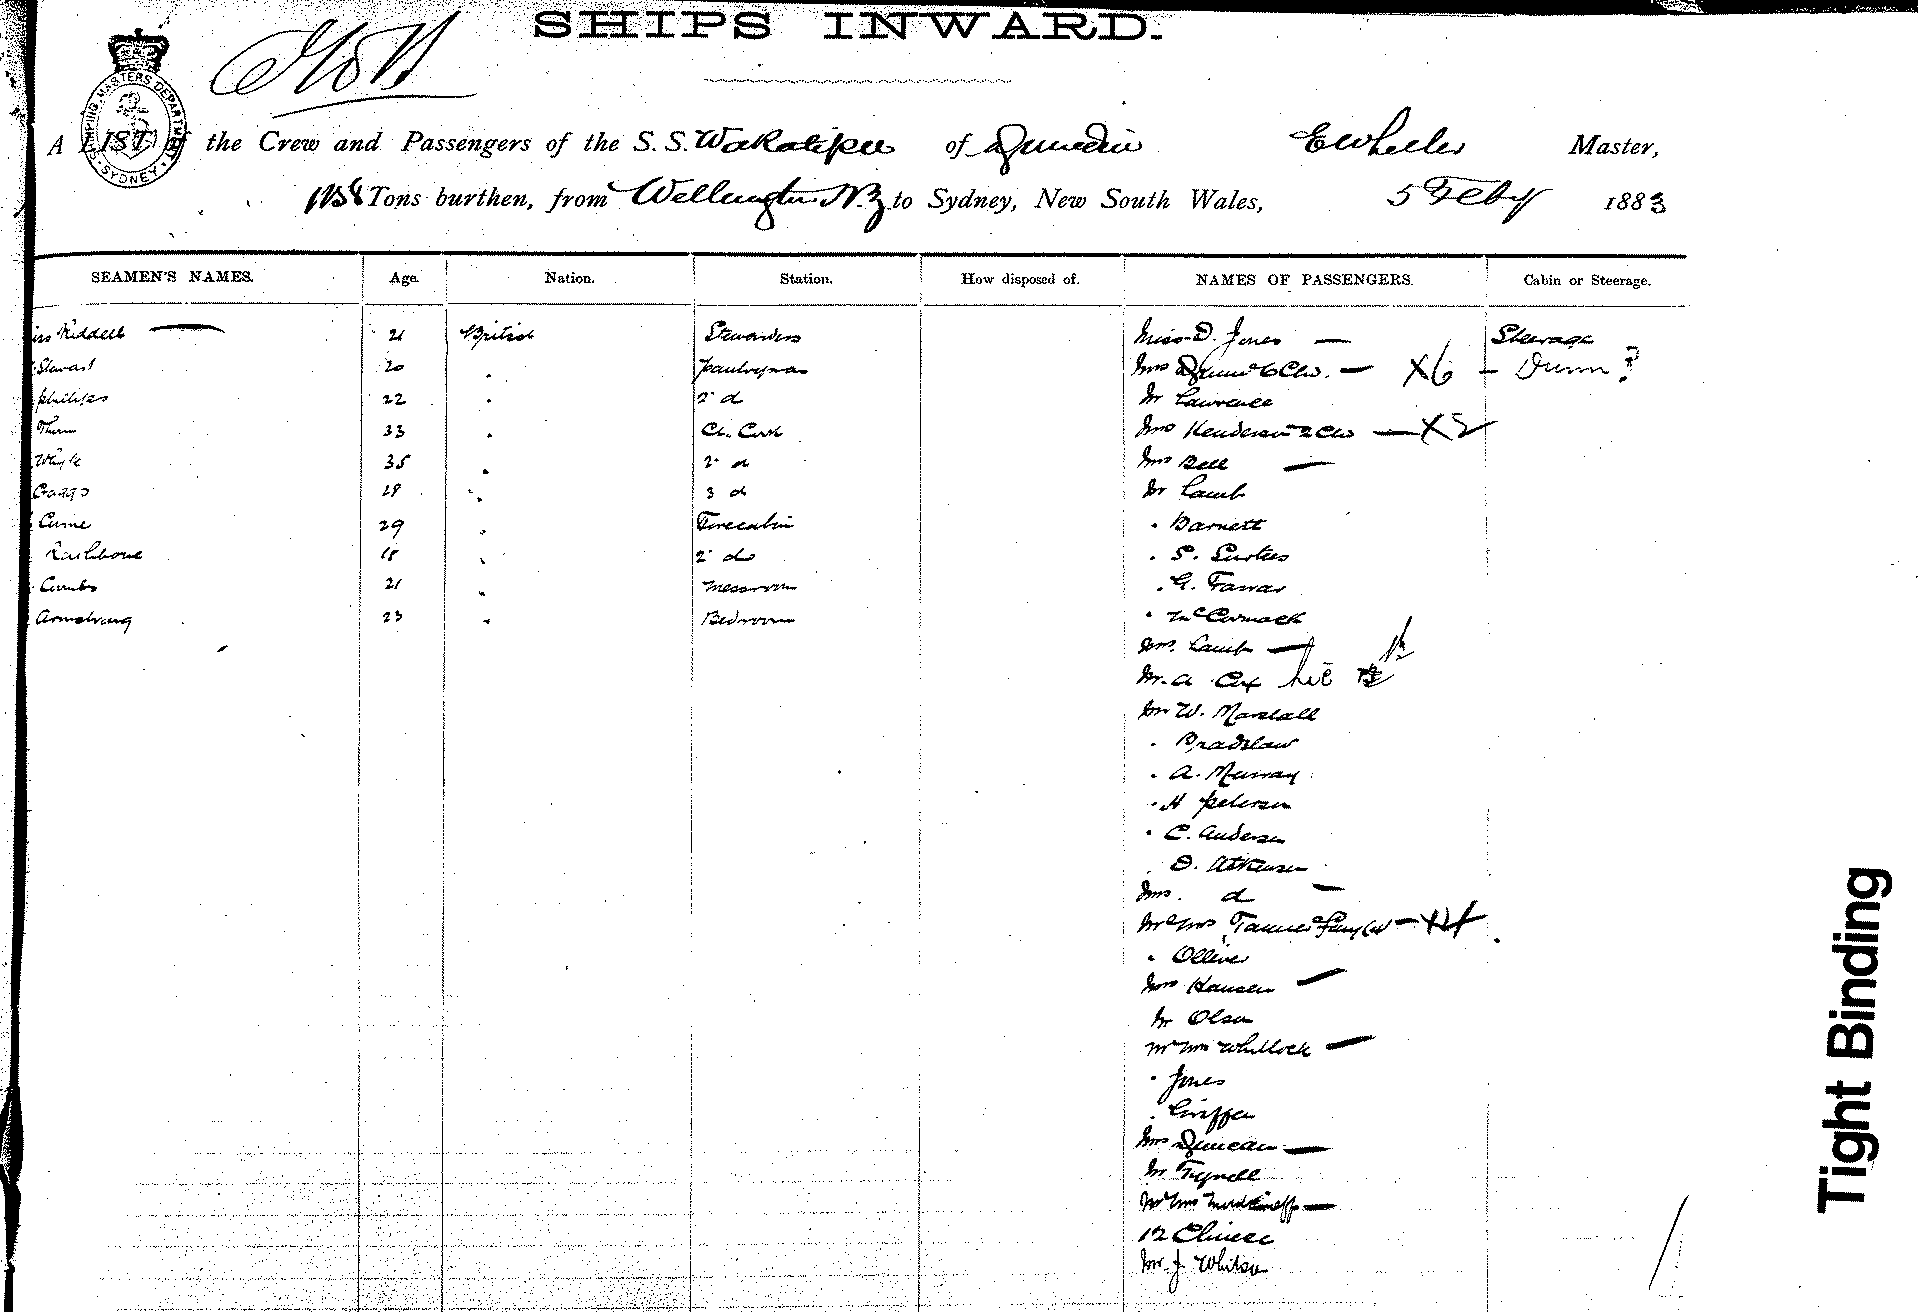 SHIPS INWARD.
SHIPPING MASTERS DEPARTMENT SYDNEY
A LIST of the Crew and Passengers of the S.S. Wakatipu of Dunedin E Wheeler Master,
Tons burthen, from Wellington N.Z to Sydney, New South Wales, 5 Feby 1883
SEAMEN'S NAMES. Age. Nation. Station. How disposed of. NAMES OF PASSENGERS. Cabin or Steerage.
Riddell 21 British Stewardess Miss D. Jones — Steerage
Stewart 20 " Pantryman Mrs Dunn 6 Chn. — X6 — Dunn?
Philips 22 " 2d Mr Lawrence
33 " Ch. Cook Mrs Henderson 2 Chn — X2
Whyte 35 " 2 d Mrs Bell —
18 " 3 d Mr Lamb
Currie 29 " Forecabin " Barnett
Rathbone 18 " 2 do " S. Surtees
Cumbs 21 " Messroom " G. Farrar
Armstrong 23 " Bedroom " McCormack
Mrs. Lamb —
Mr. A Cox
Mr W. Marshall
" Bradslaw
" A. Murray
" H Petersen
" C. Andersen
D. Atkinson
Mrs. d —
Mr & Mrs Tanner — X4
" Olliver
Mrs Hansen —
Mr Olsen
Mr Mrs Whillock —
" Jones
" Griffen
Mrs Duncan —
Mr Tyrrell
Mr Mrs —
12 Chinese
Mr J Whitson
Tight Binding